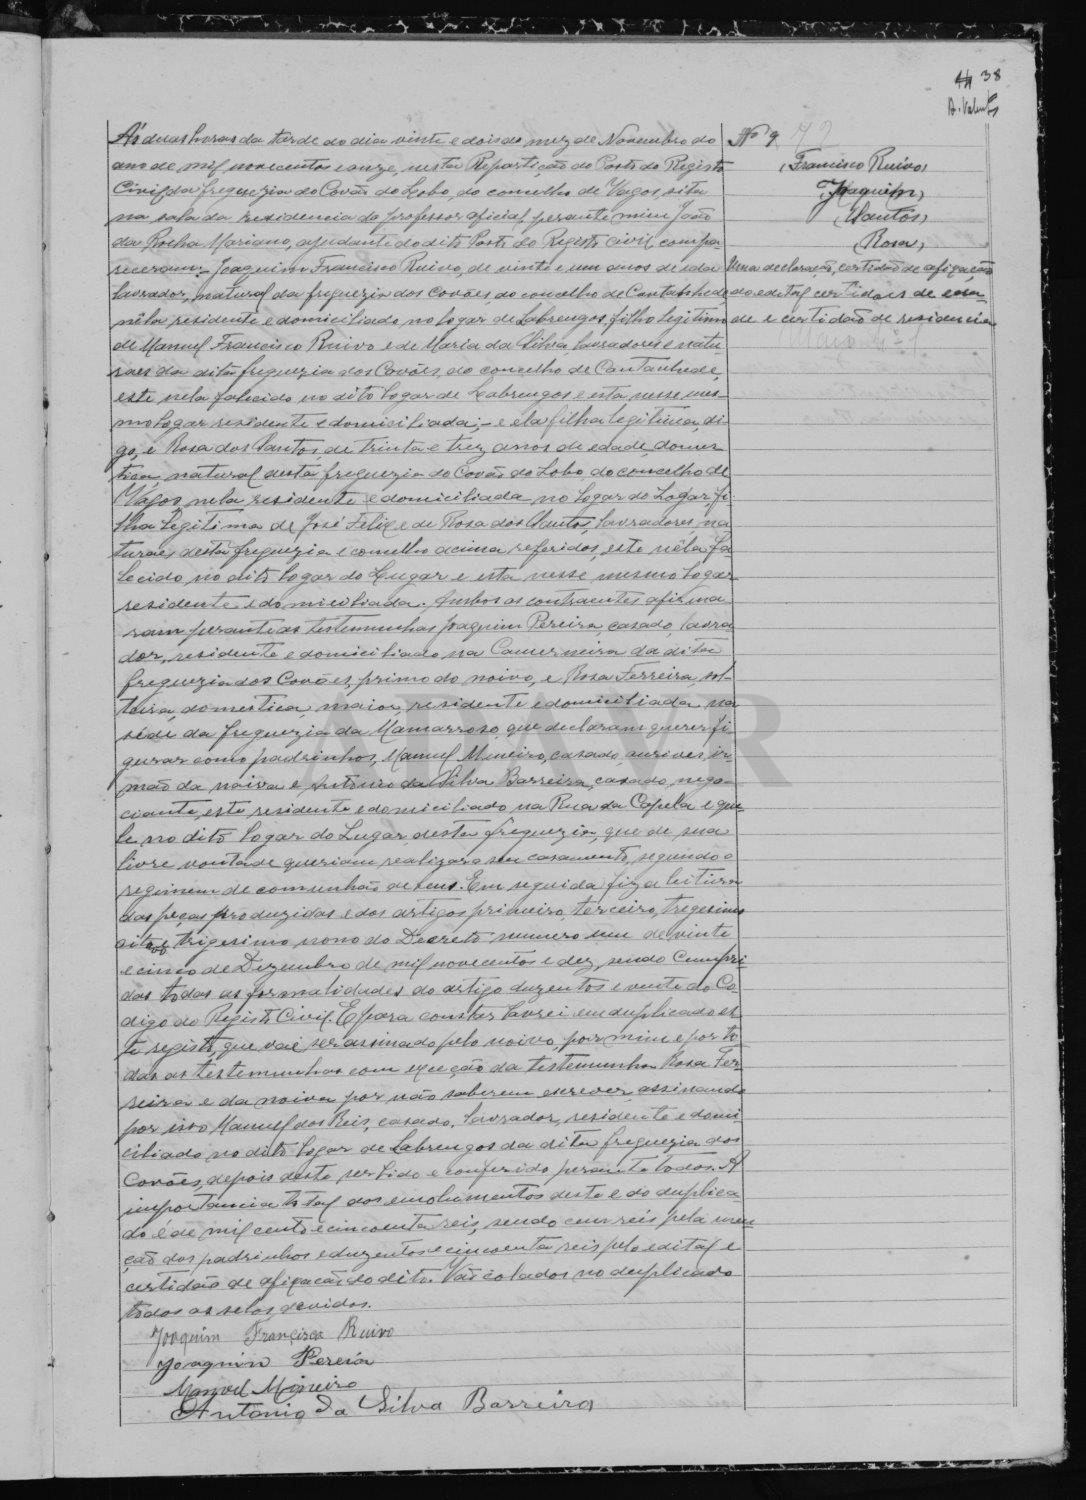 44 38
A. Valente
Nº 9 72
Francisco Ruivo,
Joaquim,
Santos,
Rosa,
Uma declaração, certidão de afixação
do edital certidões de eda-
de e certidão de residencia
Maço nº 1
Ás duas horas da tarde do dia vinte e dois do mez de Novembro do
ano de mil novecentos e onze, nesta Repartição do Posto do Registo
Civil da freguezia do Covão do Lobo, do concelho de Vagos, sita
na sala da residencia do professor oficial, perante mim João
da Rocha Mariano, ajudante do dito Posto do Registo civil compa-
receram:- Joaquim Francisco Ruivo, de vinte e um anos de edade
lavrador, natural da freguezia dos Covões do concelho de Cantanhede,
nêla residente e domiciliado no logar de Labrengos, filho legitimo
de Manuel Francisco Ruivo e de Maria da Silva, lavradores e natu-
raes da dita freguezia dos Covões, do concelho de Cantanhede,
este nela falecido no dito logar de Labrengos e esta nesse mes-
mo logar residente e domiciliada; - e ela filha legitima, di-
go, e Rosa dos Santos, de trinta e trez anos de edade, domes-
tica, natural desta freguezia do Covão do Lobo, do concelho de
Vagos, nela residente e domiciliada no logar do Lugar, fi-
lha legitima de José Felix e de Rosa dos Santos, lavradores, na-
turaes desta freguezia e concelho acima referidos, este nêla fa-
lecido no dito logar do Lugar e esta nesse mesmo logar
residente e domiciliada. Ambos os contraentes afirma-
ram perante as testemunhas Joaquim Pereira, casado, lavra-
dor, residente e domiciliado na Camerneira da dita
freguezia dos Covões, primo do noivo, e Rosa Ferreira, sol-
teira, domestica, maior, residente e domiciliada na
séde da freguezia da Mamarrosa, que declaram querer fi-
gurar como padrinhos, Manuel Mineiro, casado, ourives, ir-
mão da noiva e Antonio da Silva Barreira, casado, nego-
ciante, este residente e domiciliado na Rua da Capela e aque-
le no dito logar do Lugar, desta freguezia, que de sua
livre vontade queriam realizar o seu casamento, segundo o
regimen de comunhão de bens. Em seguida fiz a leitura
das peças produzidas e dos artigos primeiro, terceiro, trigesimo
oitavo e trigesimo nono do Decreto numero um de vinte
e cinco de Dezembro de mil novecentos e dez, sendo cumpri-
das todas as formalidades do artigo duzentos e vinte do Co-
digo do Registo Civil. E para constar lavrei em duplicado es-
te registo, que vae ser assinado pelo noivo, por mim e por to-
das as testemunhas com exceção da testemunha Rosa Fer-
reira e da noiva por não saberem escrever, assinando
por isso Manuel dos Reis, casado, lavrador, residente e domi-
ciliado no dito logar de Labrengos da dita freguezia dos
Covões, depois deste ser lido e conferido perante todos. A
importancia total dos emolumentos deste e do duplica-
do é de mil cento e cincoenta reis, sendo cem réis pela men-
ção dos padrinhos e duzentos e cincoenta reis pelo edital e
certidão de afixação do dito. Vão colados no duplicado
todos os selos devidos.
Joaquim Francisco Ruivo
Joaquim Pereira
Manoel Mineiro
Antonio da Silva Barreira
ADAVR